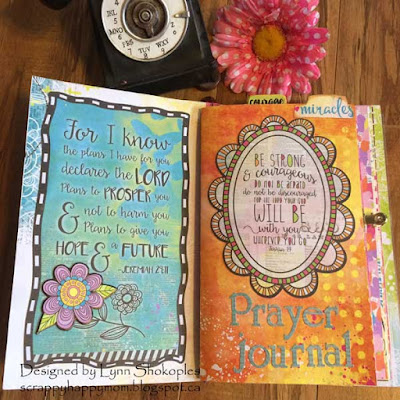 For I know
the plans I have for you
declares the LORD
Plans to PROSPER you
& not to harm you
Plans to give you
HOPE & a FUTURE
-JEREMIAH 29:11
courage
miracles
BE STRONG
& courageous
DO NOT BE AFRAID
do not be discouraged
FOR THE LORD YOUR GOD
WILL BE
with you
WHEREVER YOU GO
Prayer
journal
Designed by Lynn Shokoples
scrappyhappymom.blogspot.ca